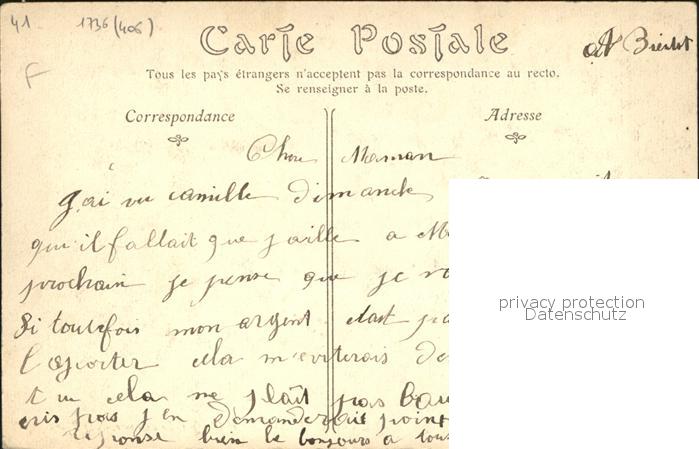 41 1736 (406)
F
Carte Postale
Tous les pays étrangers n'acceptent pas la correspondance au recto.
Se renseigner à la poste.
Correspondance
Adresse
Chere Maman
J'ai vu camille Dimanche
qu'il fallait que j'aille a
prochain je pense que je
Si toutefois mon argent
l'aporter cela m'eviterais
cela ne plait pas
pas j'en demanderait point
reponse bien le bonjours a
privacy protection
Datenschutz